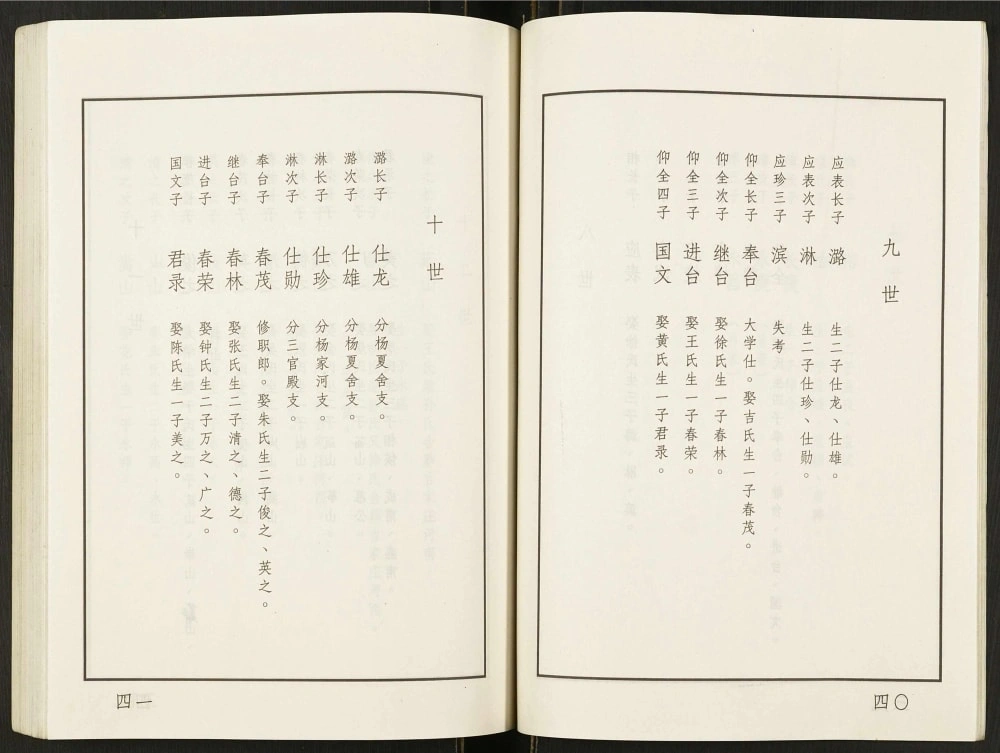 九世
应表长子 潞 生二子仕龙、仕雄。
应表次子 淋 生二子仕珍、仕勋。
应珍三子 滨 失考
仰全长子 奉台 大学仕。娶吉氏生一子春茂。
仰全次子 继台 娶徐氏生一子春林。
仰全三子 进台 娶王氏生一子春荣。
仰全四子 国文 娶黄氏生一子君录。
四〇
十世
潞长子 仕龙 分杨夏舍支。
潞次子 仕雄 分杨夏舍支。
淋长子 仕珍 分杨家河支。
淋次子 仕勋 分三官殿支。
奉台子 春茂 修职郎。娶朱氏生二子俊之、英之。
继台子 春林 娶张氏生二子清之、德之。
进台子 春荣 娶钟氏生二子万之、广之。
国文子 君录 娶陈氏生一子美之。
四一